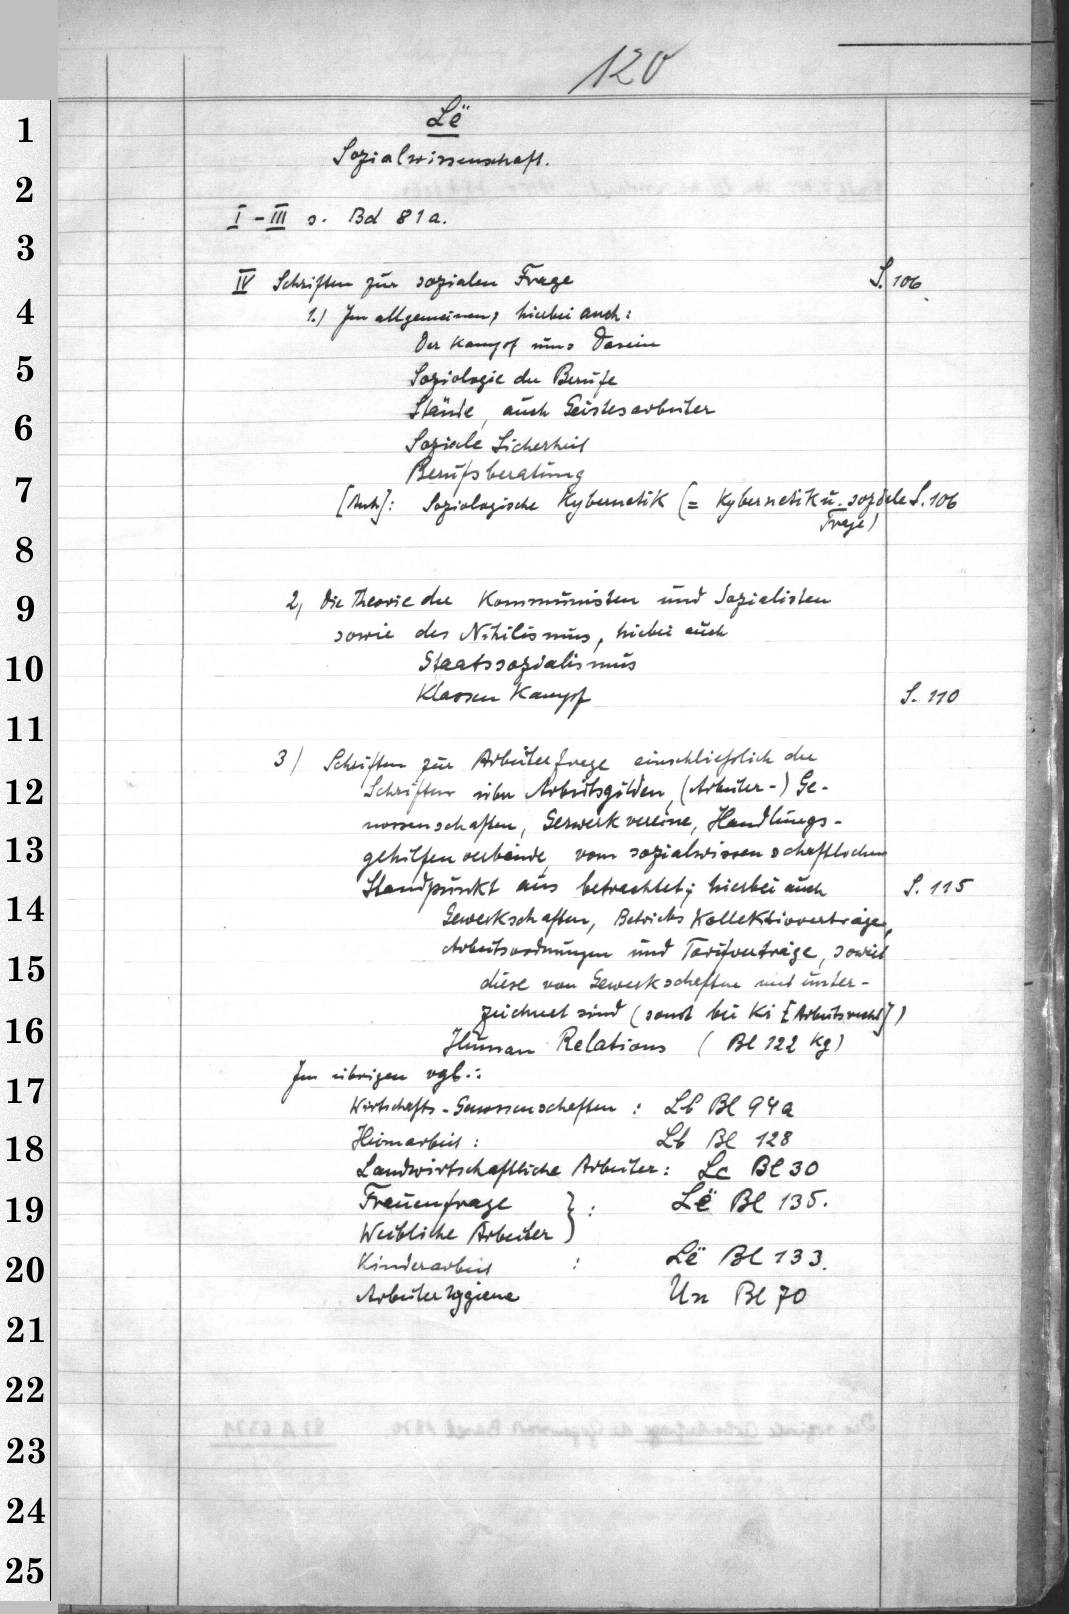 120
1
Lë
Sozialwissenschaft.
2
I - III s. Bd 81a.
3
IV Schriften zur sozialen Frage S. 106.
4
1.) Im allgemeinen, hierbei auch:
Der Kampf ums Dasein
5
Soziologie der Berufe
6
Stände, auch Geistesarbeiter
Soziale Sicherheit
7
Berufsberatung
[Auch]: Soziologische Kybernetik (= Kybernetik u. soziale S. 106
Frage)
8
9
2, Die Theorie der Kommunisten und Sozialisten
sowie des Nihilismus, hiebei auch
10
Staatssozialismus
Klassen Kampf S. 110
11
3) Schriften zur Arbeiterfrage einschließlich der
12
Schriften über Arbeitsgilden, (Arbeiter-) Ge-
nossenschaften, Gewerkvereine, Handlungs-
13
gehilfenverbände vom sozialwissenschaftlichen
Standpunkt aus betrachtet; hierbei auch S. 115
14
Gewerkschaften, Betriebs Kollektivverträge,
Arbeitsordnungen und Tarifverträge, soweit
15
diese von Gewerkschaften mit unter-
zeichnet sind (sonst bei Ki [Arbeitsrecht])
16
Human Relations (Bl 122 Kg)
Im übrigen vgl.:
17
Wirtschafts-Genossenschaften: Lb Bl 94a
18
Heimarbeit: Lb Bl 128
Landwirtschaftliche Arbeiter: Lc Bl 30
19
Frauenfrage } : Lë Bl 135.
Weibliche Arbeiter }
20
Kinderarbeit : Lë Bl 133.
Arbeiterhygiene Un Bl 70
21
22
23
24
25